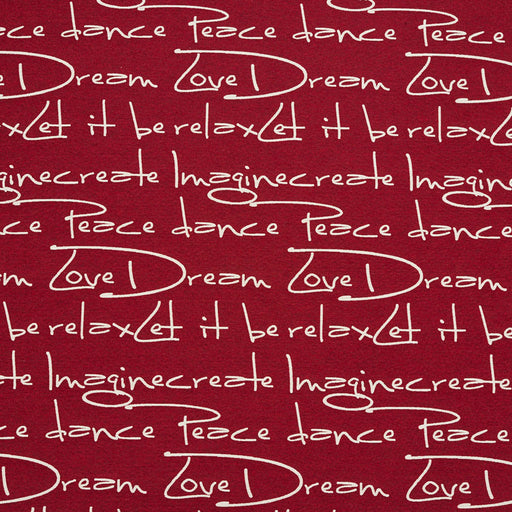 ace dance Peace dance Peace
e Dream Love Dream Love
x Let it be relax Let it be relax
aginecreate Imaginecreate Imagin
ce dance Peace dance Peace dance
m Love Dream Love Dream
be relax Let it be relax Let it be
te Imaginecreate Imaginecreate
ce dance Peace dance Peace
Dream Love Dream Love